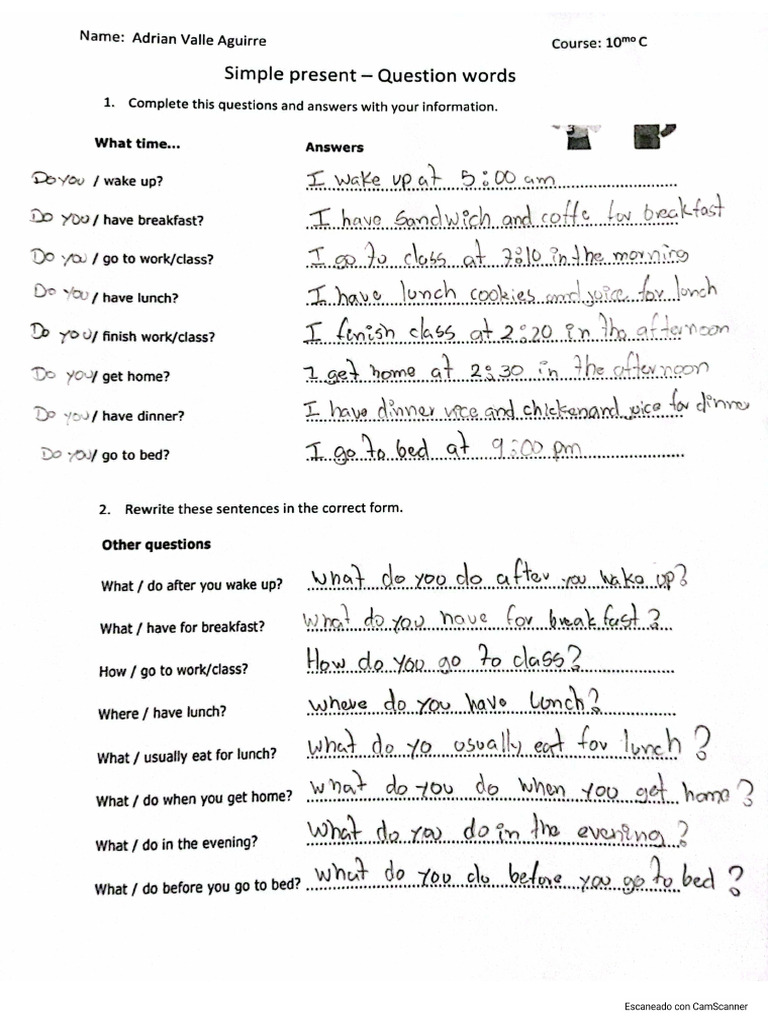 Name: Adrian Valle Aguirre Course: 10mo C
Simple present – Question words
1. Complete this questions and answers with your information.
What time... Answers
Do you / wake up? I wake up at 5:00 am
Do you / have breakfast? I have sandwich and coffe for breakfast
Do you / go to work/class? I go to class at 7:10 in the morning
Do you / have lunch? I have lunch cookies and juice for lonch
Do you / finish work/class? I fenish class at 2:20 in the afternoon
Do you / get home? I get home at 2:30 in the afternoon
Do you / have dinner? I have dinner rice and chicken and juice for dinner
Do you / go to bed? I go to bed at 9:00 pm
2. Rewrite these sentences in the correct form.
Other questions
What / do after you wake up? What do you do after you wake up?
What / have for breakfast? What do you have for breakfast?
How / go to work/class? How do you go to class?
Where / have lunch? where do you have lunch?
What / usually eat for lunch? what do yo usually eat for lunch?
What / do when you get home? what do you do when you get home?
What / do in the evening? What do you do in the evening?
What / do before you go to bed? what do you do before you go to bed?
Escaneado con CamScanner